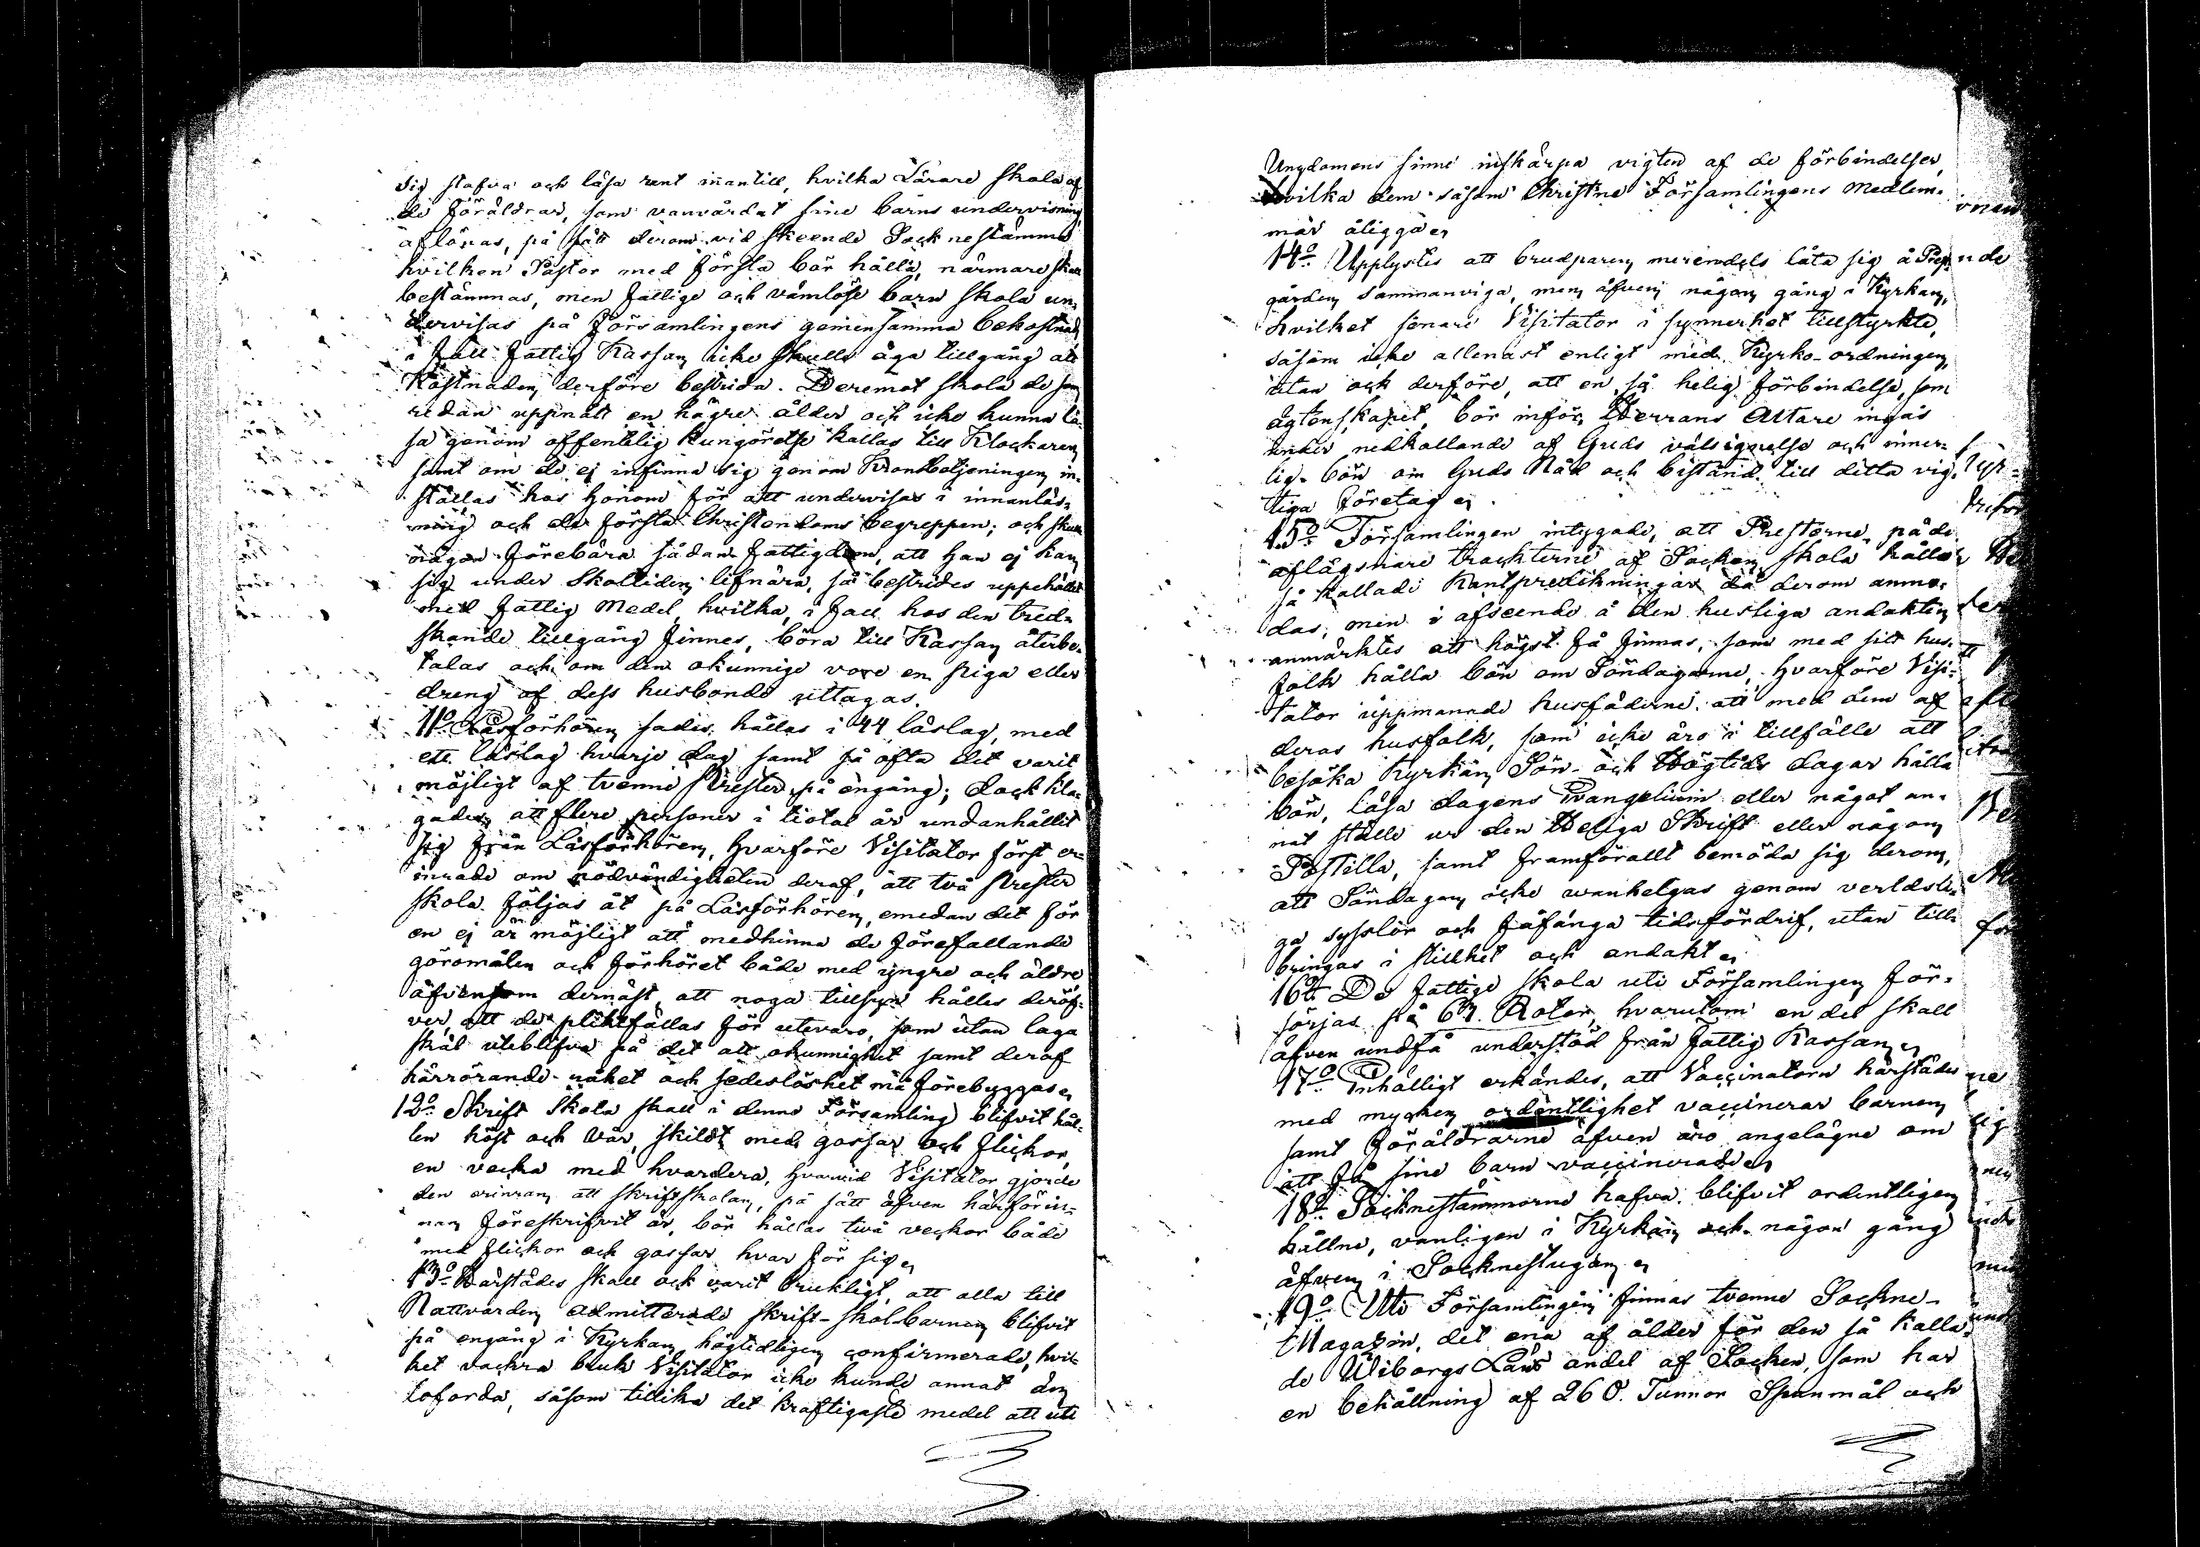 sig stafva och läsa rent innantill, hvilka Lärare skola af
de föräldrar, som vanvårdat sine barns undervisning
aflönas, på sätt derom vid skeende Socknestämma
hvilken Pastor med första bör hålla, närmare skall
bestämmas, men fattige och värnlöse barn skola un-
dervisas på församlingens gemensamma bekostnad
i fall Fattig Kassan icke skulle äga tillgång att
Kostnaden derföre bestrida. Deremot skola de som
redan uppnått en högre ålder och icke kunna lä-
sa genom offentelig kungörelse kallas till Klockaren
samt om de ej infinna sig genom Kronobetjeningen in-
ställas hos honom för att undervisas i innanläs-
ning och de första Christendoms begreppen; och skulle
någon förebära sådan fattigdom, att han ej kan
sig under Skoltiden lifnära, så bestrides uppehället
med fattig Medel, hvilka, i fall hos den tred-
skande tillgång finnes, böra till Kassan återbe-
talas och om den okunnige vore en piga eller
dreng af dess husbonde uttagas.
11o Läsförhören sades hållas i 44 läslag, med
ett läslag hvarje dag samt så ofta det varit
möjligt af tvenne Prester på engång; dock kla-
gades, att flere personer i tiotal år undanhållit
sig från Läsförhören, hvarföre Visitator först er-
inrade om nödvändigheten deraf, att två Prester
skola följas åt på Läsförhören, emedan det för
en ej är möjligt att medhinna de förefallande
göromålen och förhöret både med yngre och äldre
äfvensom dernäst, att noga tillsyn hålles deröf-
ver, att de pliktfällas för utevaro, som utan laga
skäl utebliva på det att okunnighet samt deraf
härrörande råhet och sedeslöshet må förebyggas
12o Skrift Skola skall i denna Församling blifvit hål-
len höst och vår, skildt med gossar och flickor,
en vecka med hvardera, hvarvid Visitator gjorde
den erinran att skriftskolan, på sätt äfven härförin-
nan föreskrifvit är, bör hållas två veckor både
med flickor och gossar hvar för sig
13o Härstädes skall ock varit brukligt, att alla till
Nattvarden admitterade skrift-skolbarnen blifvit
på engång i Kyrkan högtidligen confirmerade, hvil-
ket vackra bruk Visitator icke kunde annat än
loforda, såsom tillika det kraftigaste medel att uti
Ungdomens sinne inskärpa vigten af de förbindelser,
hvilka dem såsom Christne Församlingens medlem-
mar åligga
14o Upplystes att brudparen merendels låta sig å Prest-
gården sammanviga, men äfven någon gång i Kyrkan,
hvilket senare Visitator i synnerhet tillstyrkte,
såsom icke allenast enligt med Kyrko-ordningen,
utan ock derföre, att en så helig förbindelse, som
ägtenskapet, bör inför Herrans Altare ingås
under nedkallande af Guds välsignelse och inner-
lig bön om Guds Nåd och bistånd till detta vig-
tiga företag
15o Församlingen intygade, att Presterne på de
aflägsnare trackterne af Socken skola hålla
så kallade Kantpredikningar då derom anmo-
das; men i afseende å den husliga andakten
anmärktes att högst få finnas, som med sitt hus-
folk hålla bön om Söndagarne, hvarföre Visi-
tator uppmanade husfäderne att med dem af
deras husfolk, som icke äro i tillfälle att
besöka Kyrkan Sön- och Högtids dagar hålla
bön, läsa dagens Evangelium eller något an-
nat ställe ur den Heliga Skrift eller någon
Postilla, samt framförallt bemöda sig derom,
att Söndagen icke vanhelgas genom verldsli-
ga sysslor och fåfänga tidsfördrif, utan till-
bringas i stillhet och andakt
16o De fattige skola uti Församlingen för-
sörjas på 63. Rotar, hvarutom en del skall
äfven undfå understöd från Fattig Kassan
17o Enhälligt erkändes, att Vaccinatorn härstädes
med mycken ordentlighet vaccinerar barnen
samt föräldrarne äfven äro angelägne om
att få sine barn vaccinerade
18o Socknestämmorne hafva blifvit ordentligen
hållne, vanligen i Kyrkan och någon gång
äfven i Socknestugan
19o Uti Församlingen finnas tvenne Sockne-
Magasin, det ena af ålder för den så kalla-
de Wiborgs Läns andel af Socken, som har
en behållning af 260. Tunnor Spanmål och